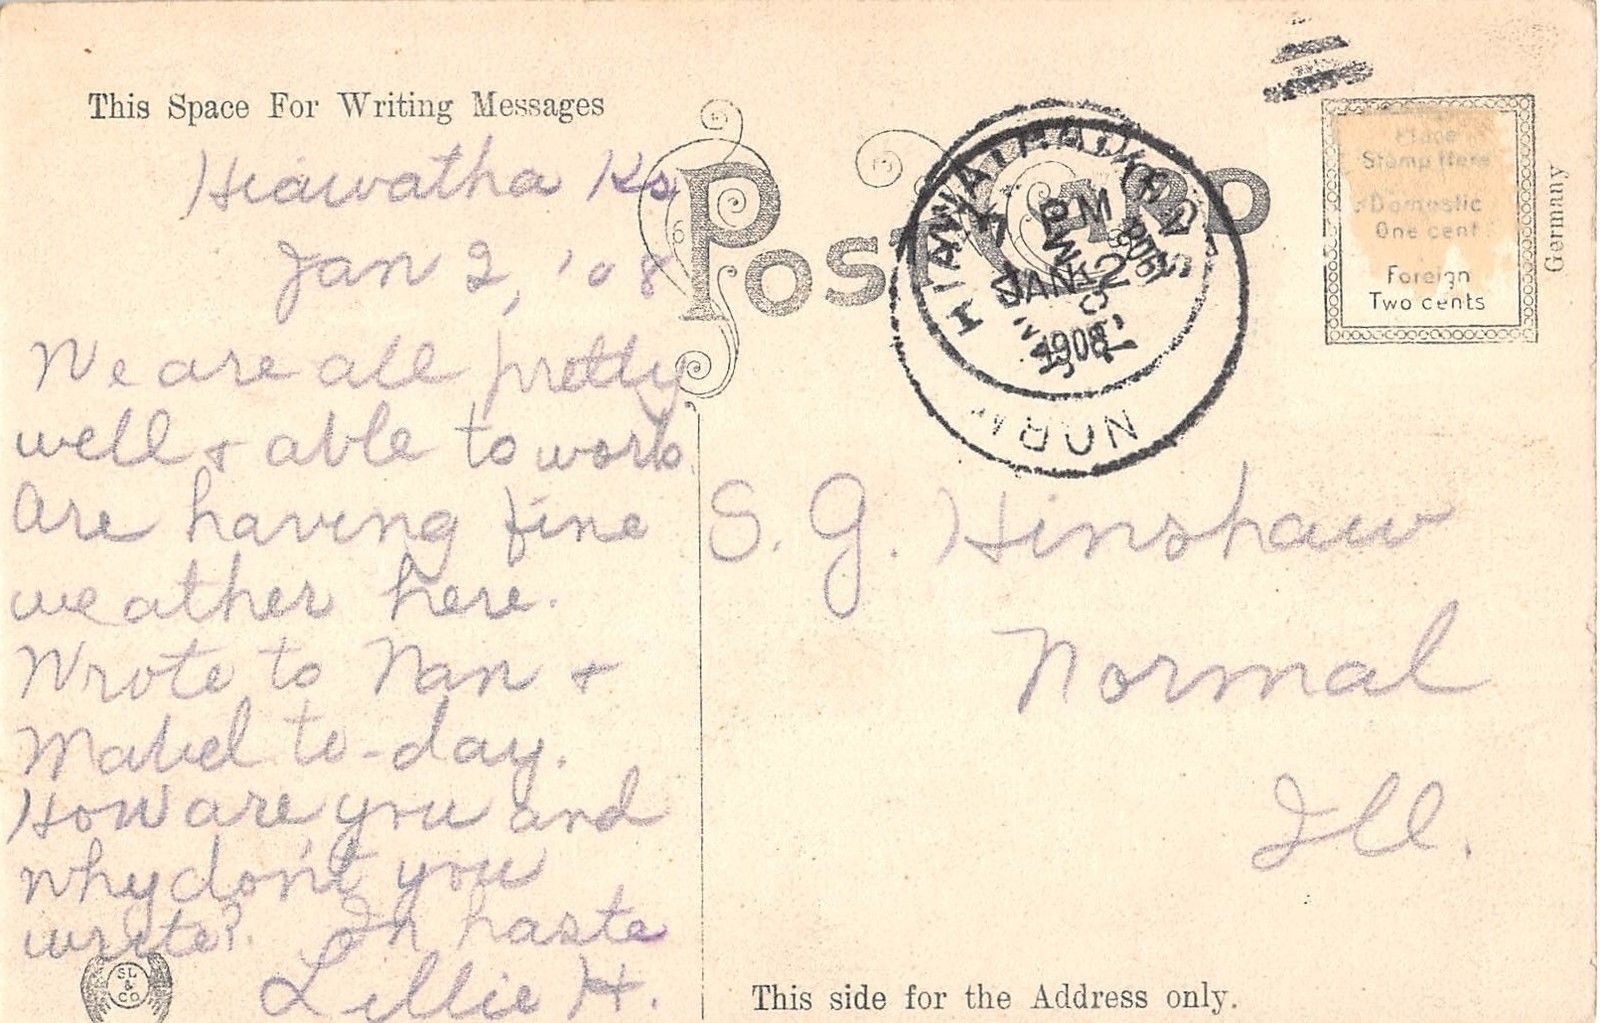 This Space For Writing Messages
Hiawatha Ks
Jan 2, '08
We are all pretty
well + able to work.
Are having fine
weather here.
Wrote to Nan +
Mabel to-day.
How are you and
why don't you
write? In haste
Lillie H.
SL
&
CO
POST CARD
HIAWATHA, KANS
PM
JAN 2
1908
NORM
Place
Stamp Here
Domestic
One cent
Foreign
Two cents
Germany
S. G. Hinshaw
Normal
Ill.
This side for the Address only.